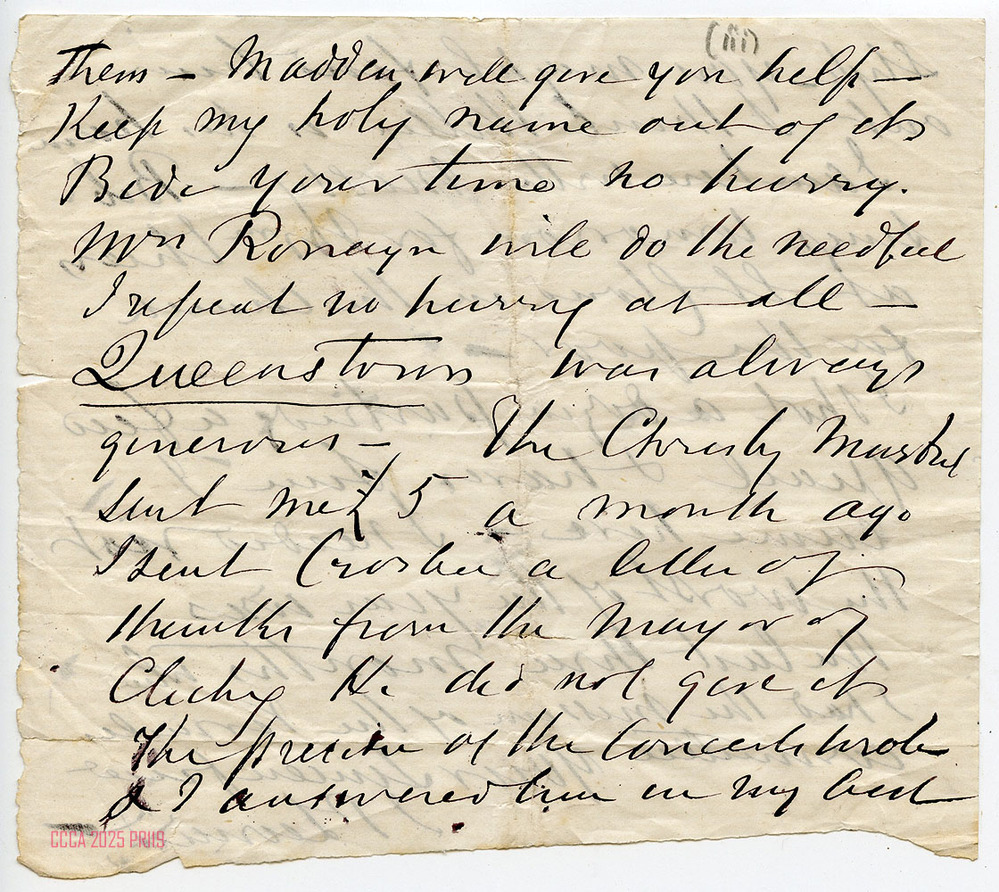 (iii)
Them – Madden will give you help –
Keep my holy name out of it
Bide your time no hurry.
Mrs Ronayn will do the needful
I repeat no hurry at all –
Queenstown was always
generous – The Christy Minstrel
sent me £5 a month ago
I sent Crosbie a letter of
thanks from the Mayor of
Clichy He did not give it
The of the Concert wrote
& I answered him in my best
CCCA 2025 PR119